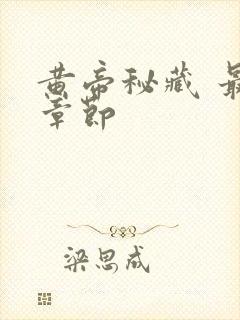 黄帝秘藏 最
章节
梁思成